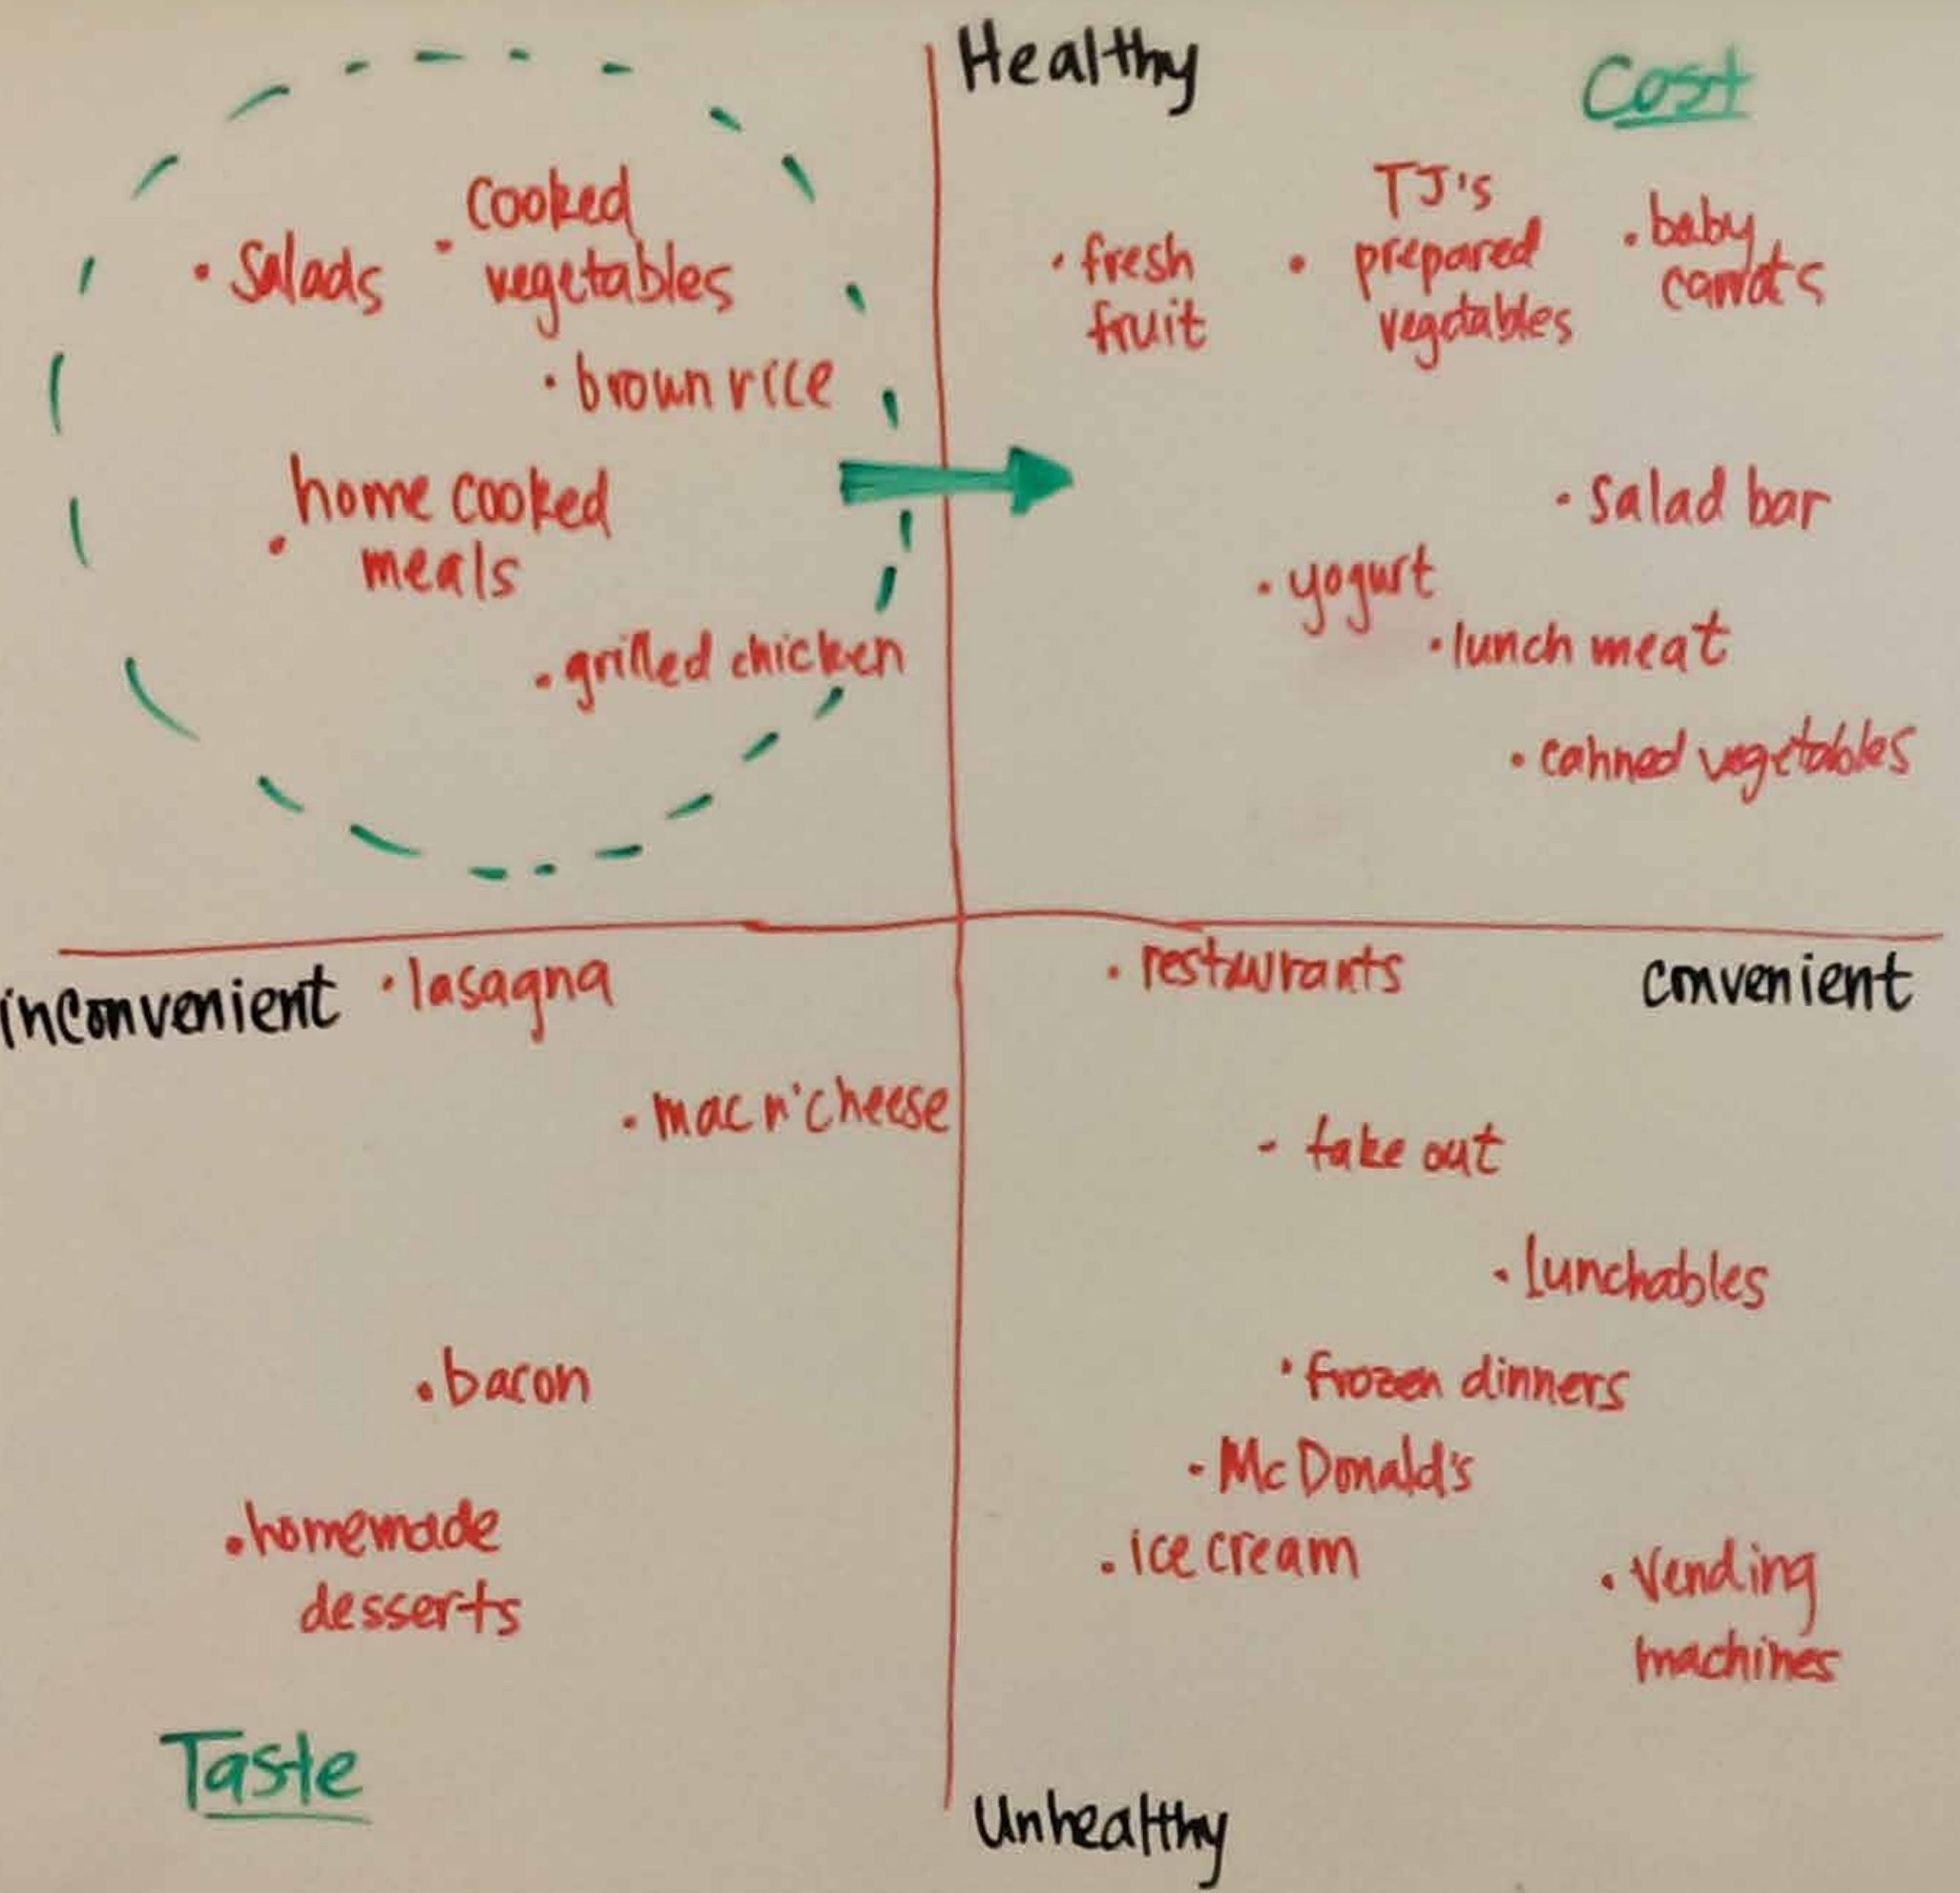 Healthy
Cost
Cooked
vegetables
• Salads
• brown rice
home cooked
meals
• grilled chicken
• fresh
fruit
TJ's
• prepared
vegetables
• baby
carrots
• salad bar
• yogurt
• lunch meat
• canned vegetables
inconvenient
• lasagna
• mac n' cheese
• bacon
• homemade
desserts
Taste
• restaurants
convenient
- take out
• lunchables
• frozen dinners
- McDonald's
• ice cream
• vending
machines
Unhealthy